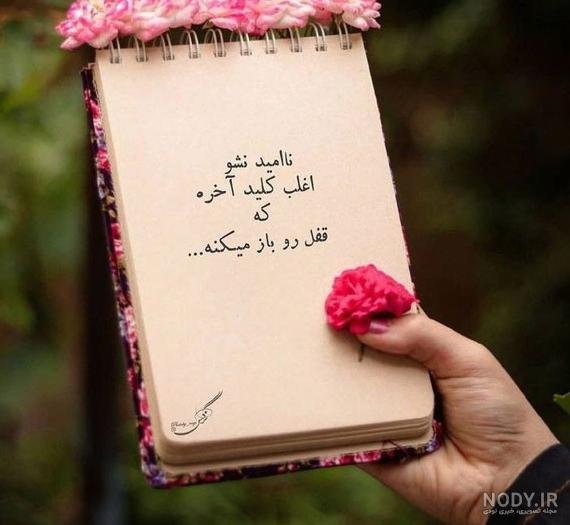 ناامید نشو
اغلب کلید آخره
که
قفل رو باز میکنه...
NODY.IR
مجله تصویری، خبری نودی